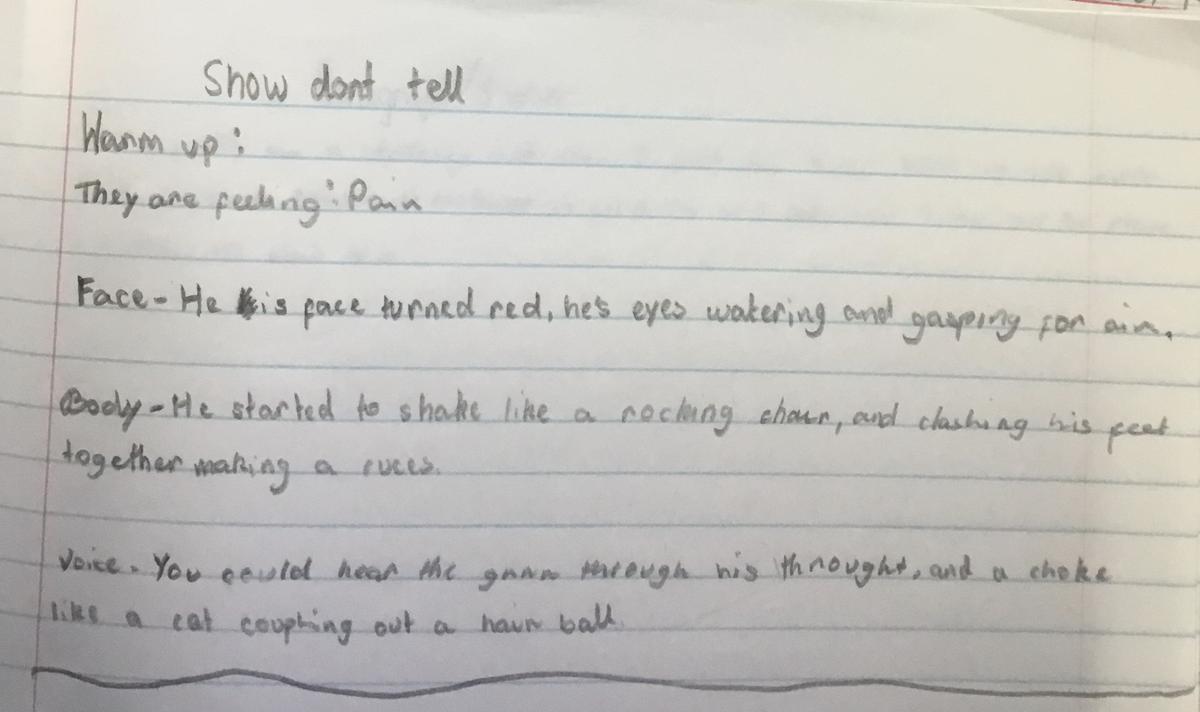 Show dont tell
Warm up:
They are feeling: Pain
Face - He is face turned red, he's eyes watering and gasping for air.
Body - He started to shake like a rocking chair, and clashing his feet
together making a ruces.
Voice - You could hear the grrr through his throught, and a choke
like a cat couphing out a hair ball.